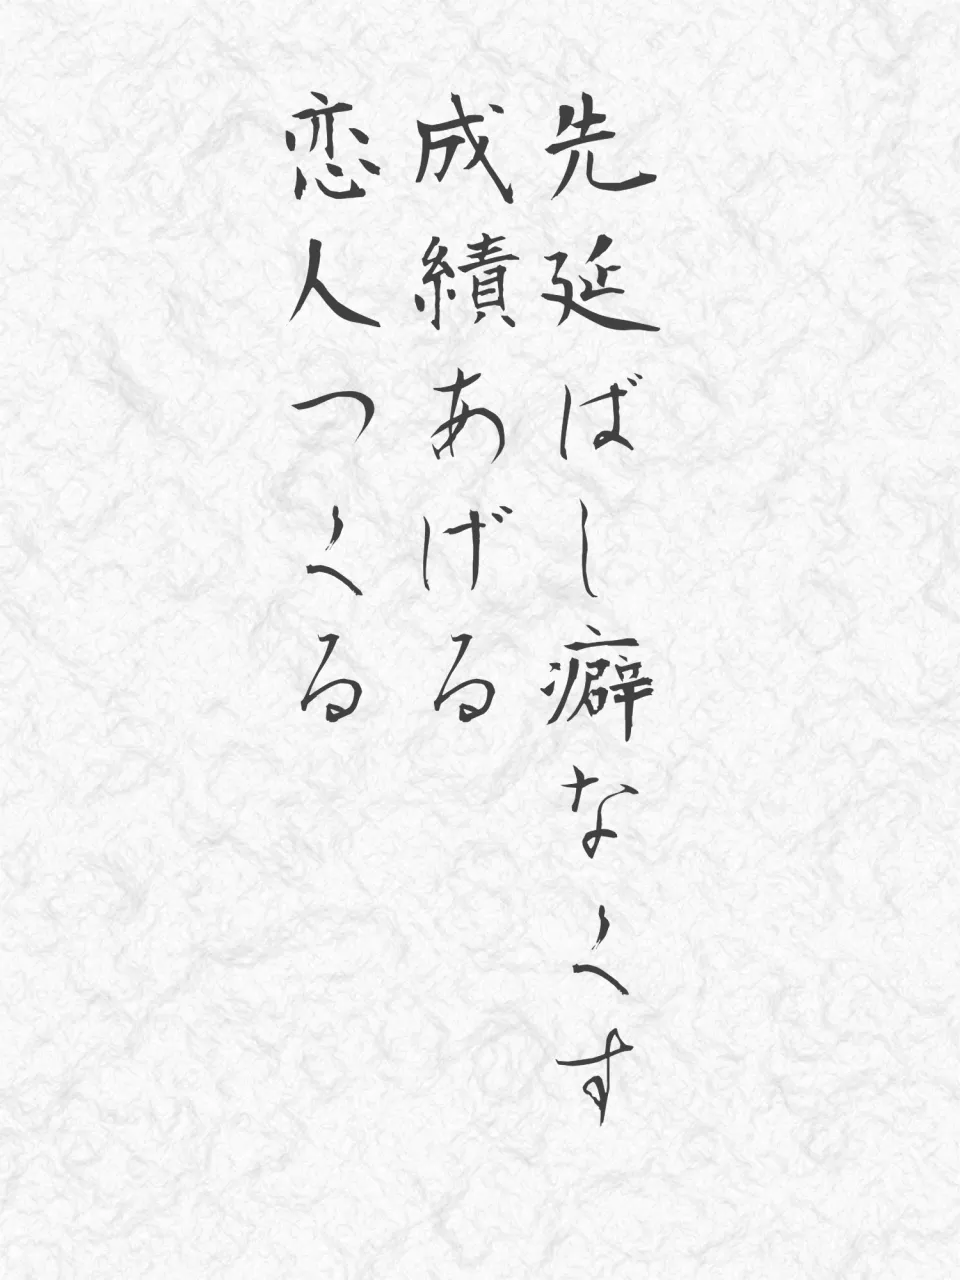 先延ばし癖なくす
成績あげる
恋人つくる